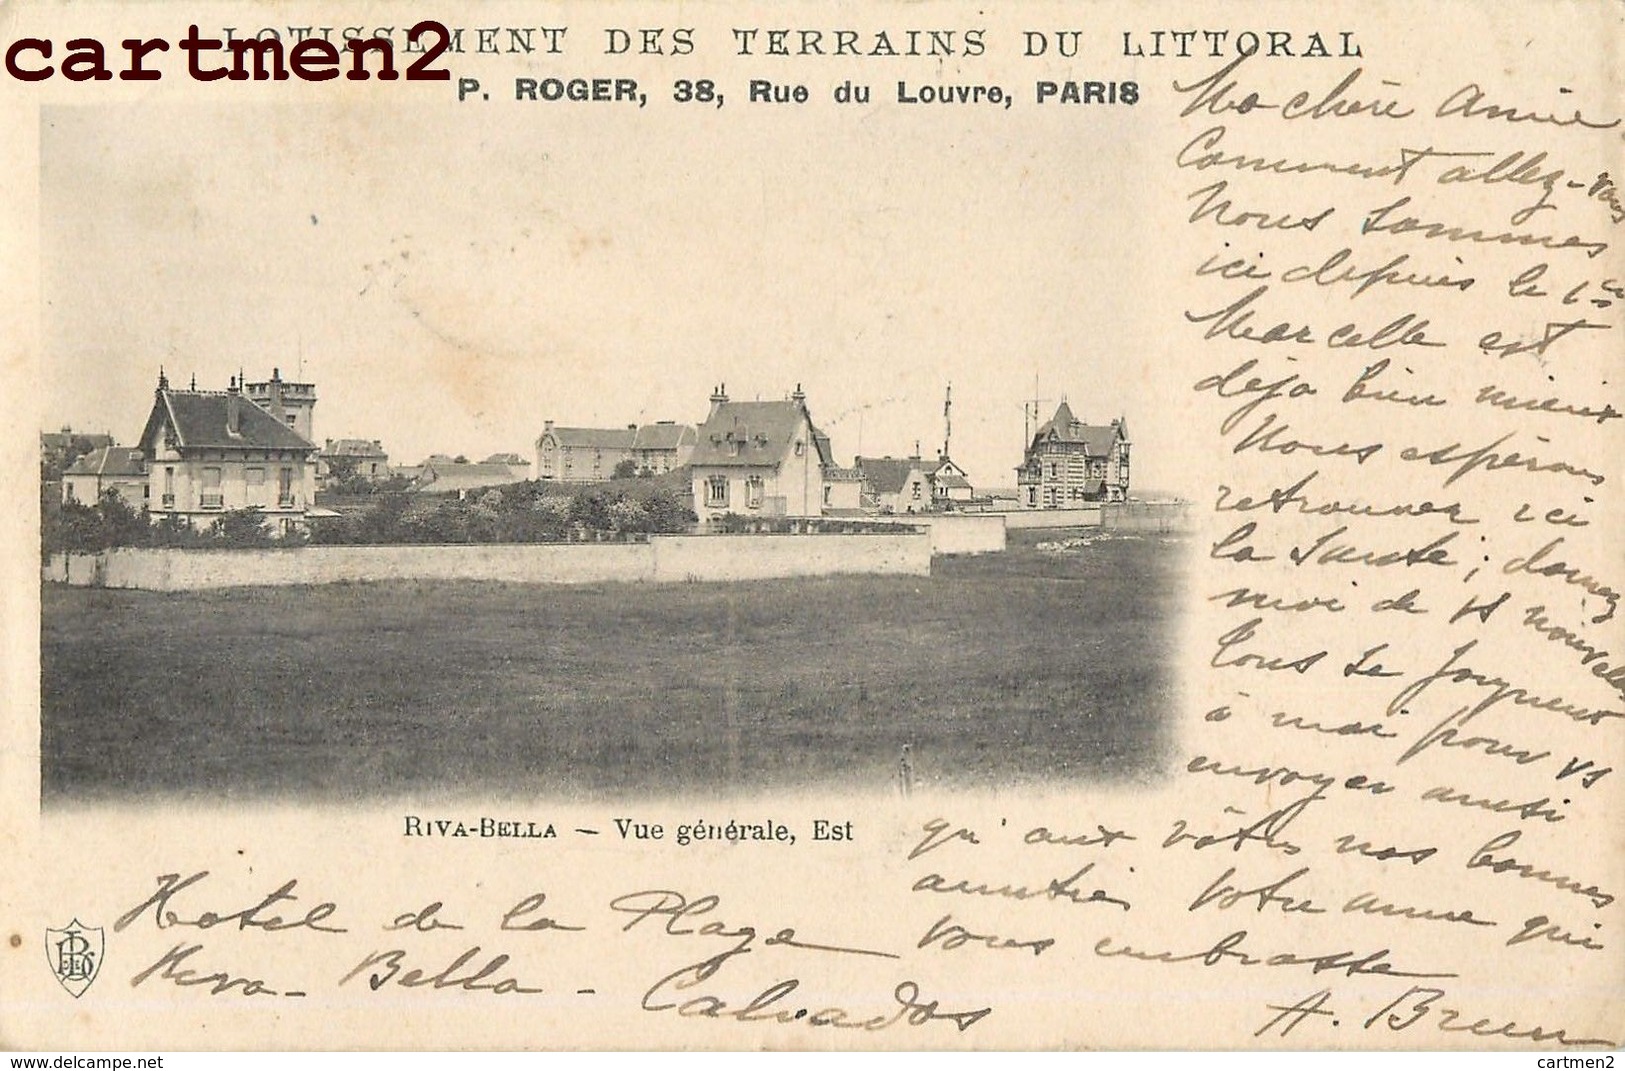 cartmen2
LOTISSEMENT DES TERRAINS DU LITTORAL
P. ROGER, 38, Rue du Louvre, PARIS
Ma chère Amie
Comment allez-vous
Nous sommes
ici depuis le 1er
Marcelle est
déjà bien mieux
Nous espérons
retrouver ici
la Santé ; donnez
moi de vs nouvelles
Tous se joignent
à moi pour vs
envoyer ainsi
qu'aux vôtres nos bonnes
amitiés Votre amie qui
vous embrasse
A. Brun
RIVA-BELLA — Vue générale, Est
Hotel de la Plage
Riva-Bella - Calvados
cartmen2
https://www.delcampe.net